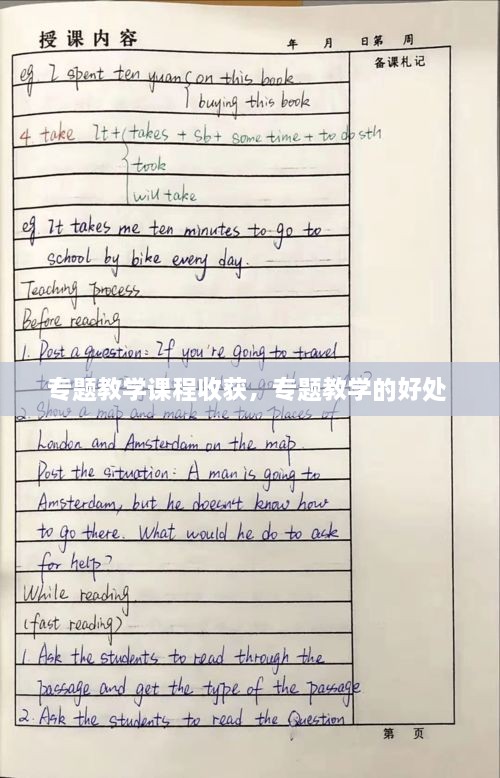 授课内容
年 月 日第 周
备课札记
eg. I spent ten yuan { on this book
buying this book
4. take It + { takes + sb + some time + to do sth
took
will take
eg. It takes me ten minutes to go to
school by bike every day.
Teaching process
Before reading
1. Post a question: If you're going to travel
专题教学课程收获，专题教学的好处
2. Show a map and mark the two places of
London and Amsterdam on the map.
Post the situation: A man is going to
Amsterdam, but he doesn't know how
to go there. What would he do to ask
for help?
While reading
(fast reading)
1. Ask the students to read through the
passage and get the type of the passage
2. Ask the students to read the Question
第 页